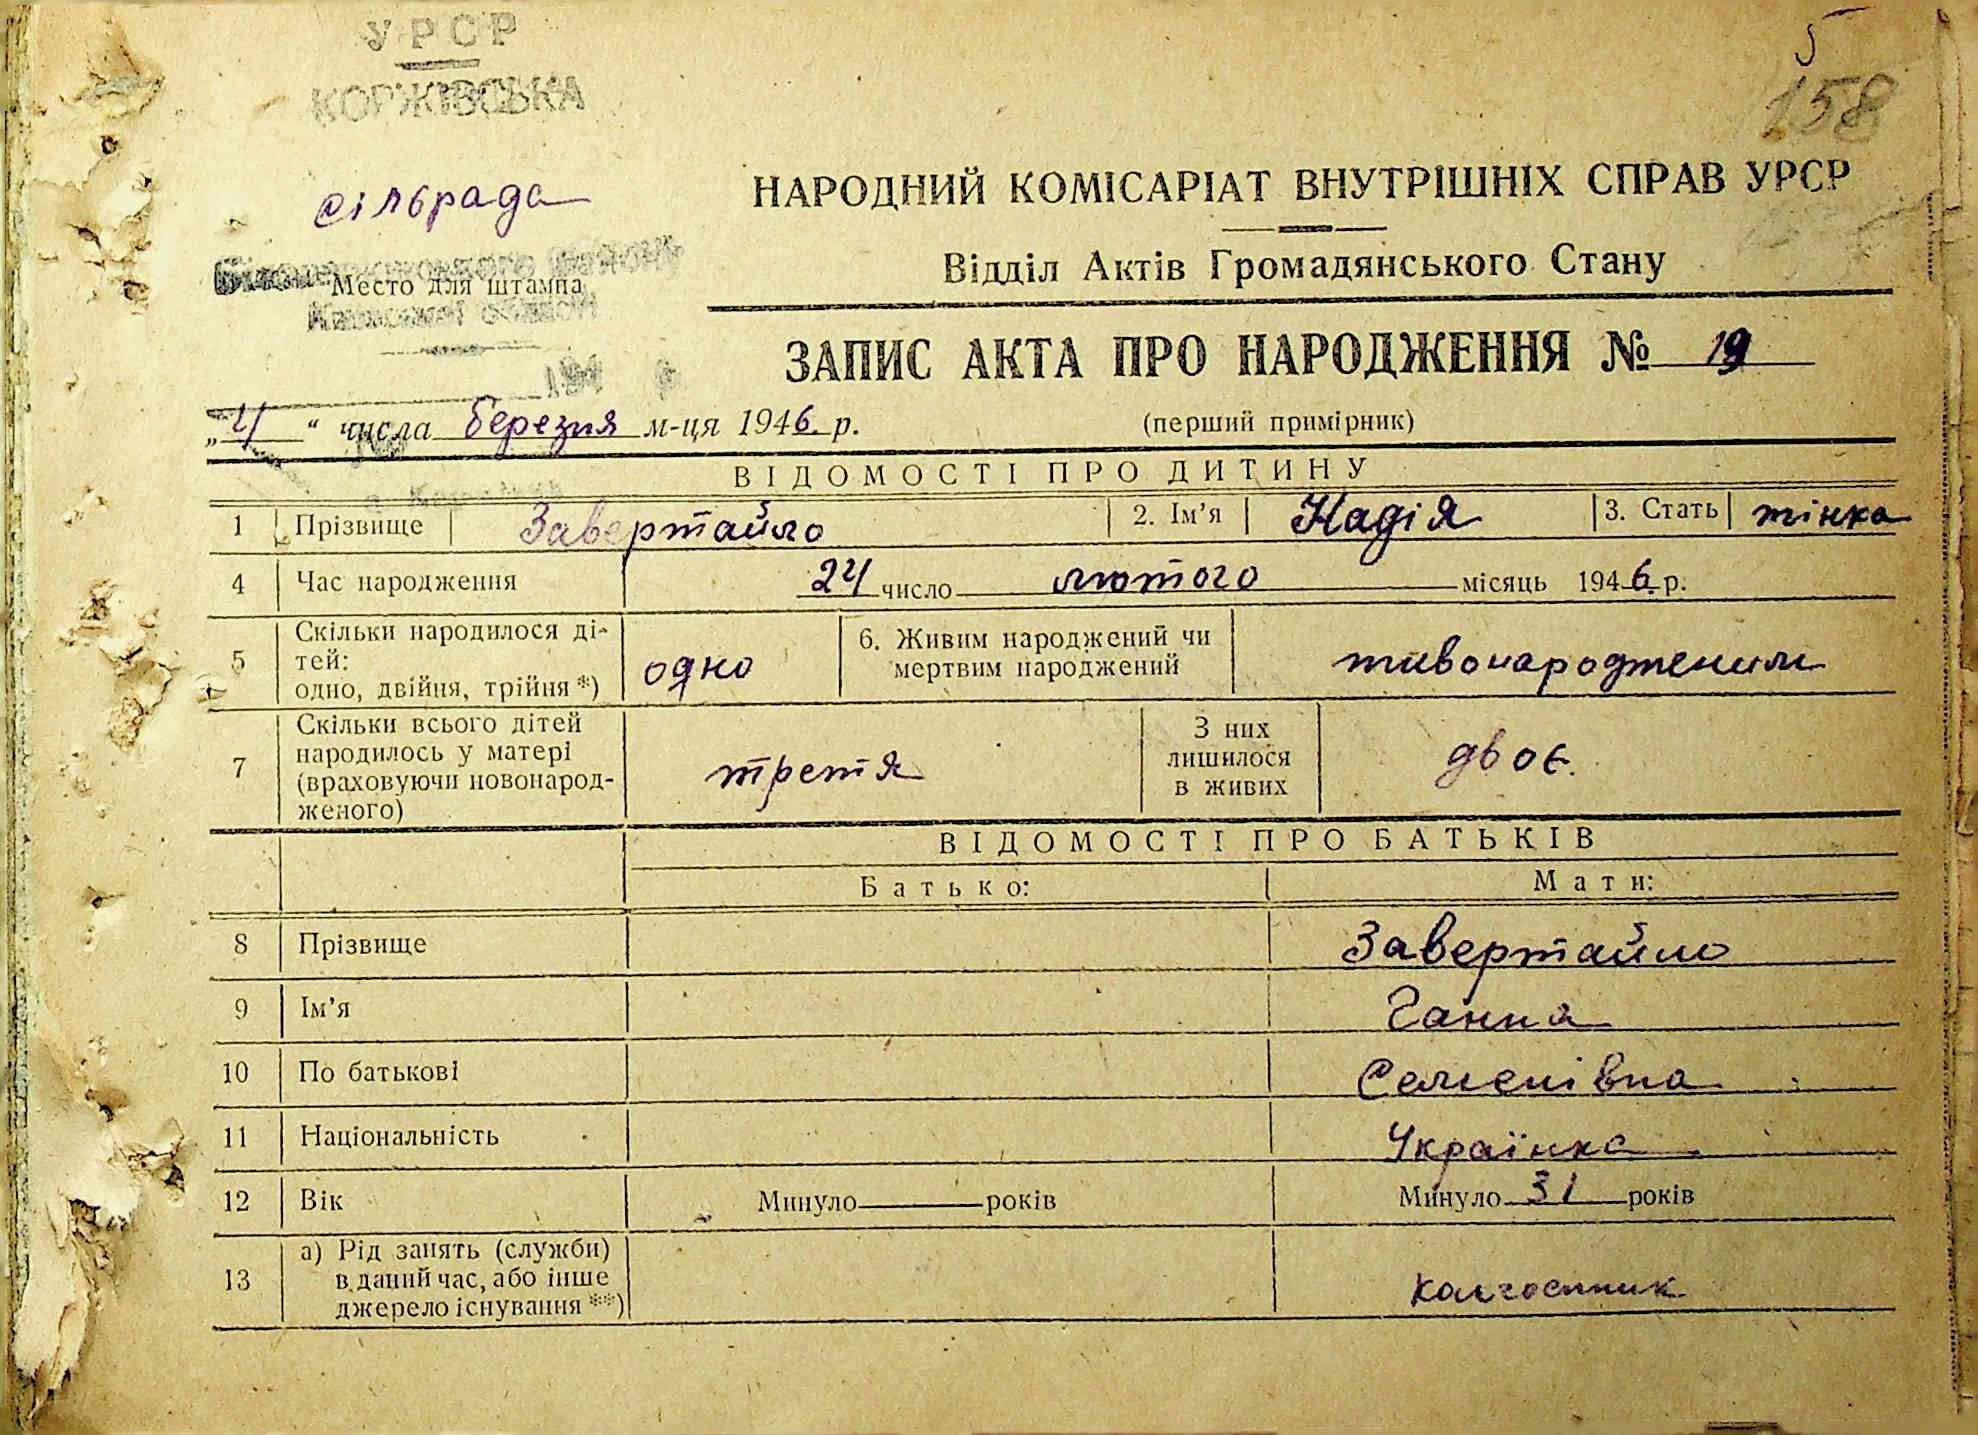 5
158
УРСР
КОРЖІВСЬКА
сільрада
Место для штампа
НАРОДНИЙ КОМІСАРІАТ ВНУТРІШНІХ СПРАВ УРСР
Відділ Актів Громадянського Стану
ЗАПИС АКТА ПРО НАРОДЖЕННЯ № 19
(перший примірник)
„4“ числа березня м-ця 1946. р.
ВІДОМОСТІ ПРО ДИТИНУ
1 Прізвище Завертайло 2. Ім’я Надія 3. Стать жінка
4 Час народження 24 число лютого місяць 1946. р.
5 Скільки народилося ді-
тей:
одно, двійня, трійня *) одно 6. Живим народжений чи
мертвим народжений живонародженим
7 Скільки всього дітей
народилось у матері
(враховуючи новонарод-
женого) третя З них
лишилося
в живих двоє.
ВІДОМОСТІ ПРО БАТЬКІВ
Батько: Мати:
8 Прізвище Завертайло
9 Ім’я Ганна
10 По батькові Семенівна
11 Національність Українка
12 Вік Минуло років Минуло 31 років
13 а) Рід занять (служби)
в даний час, або інше
джерело існування **) Колгоспник